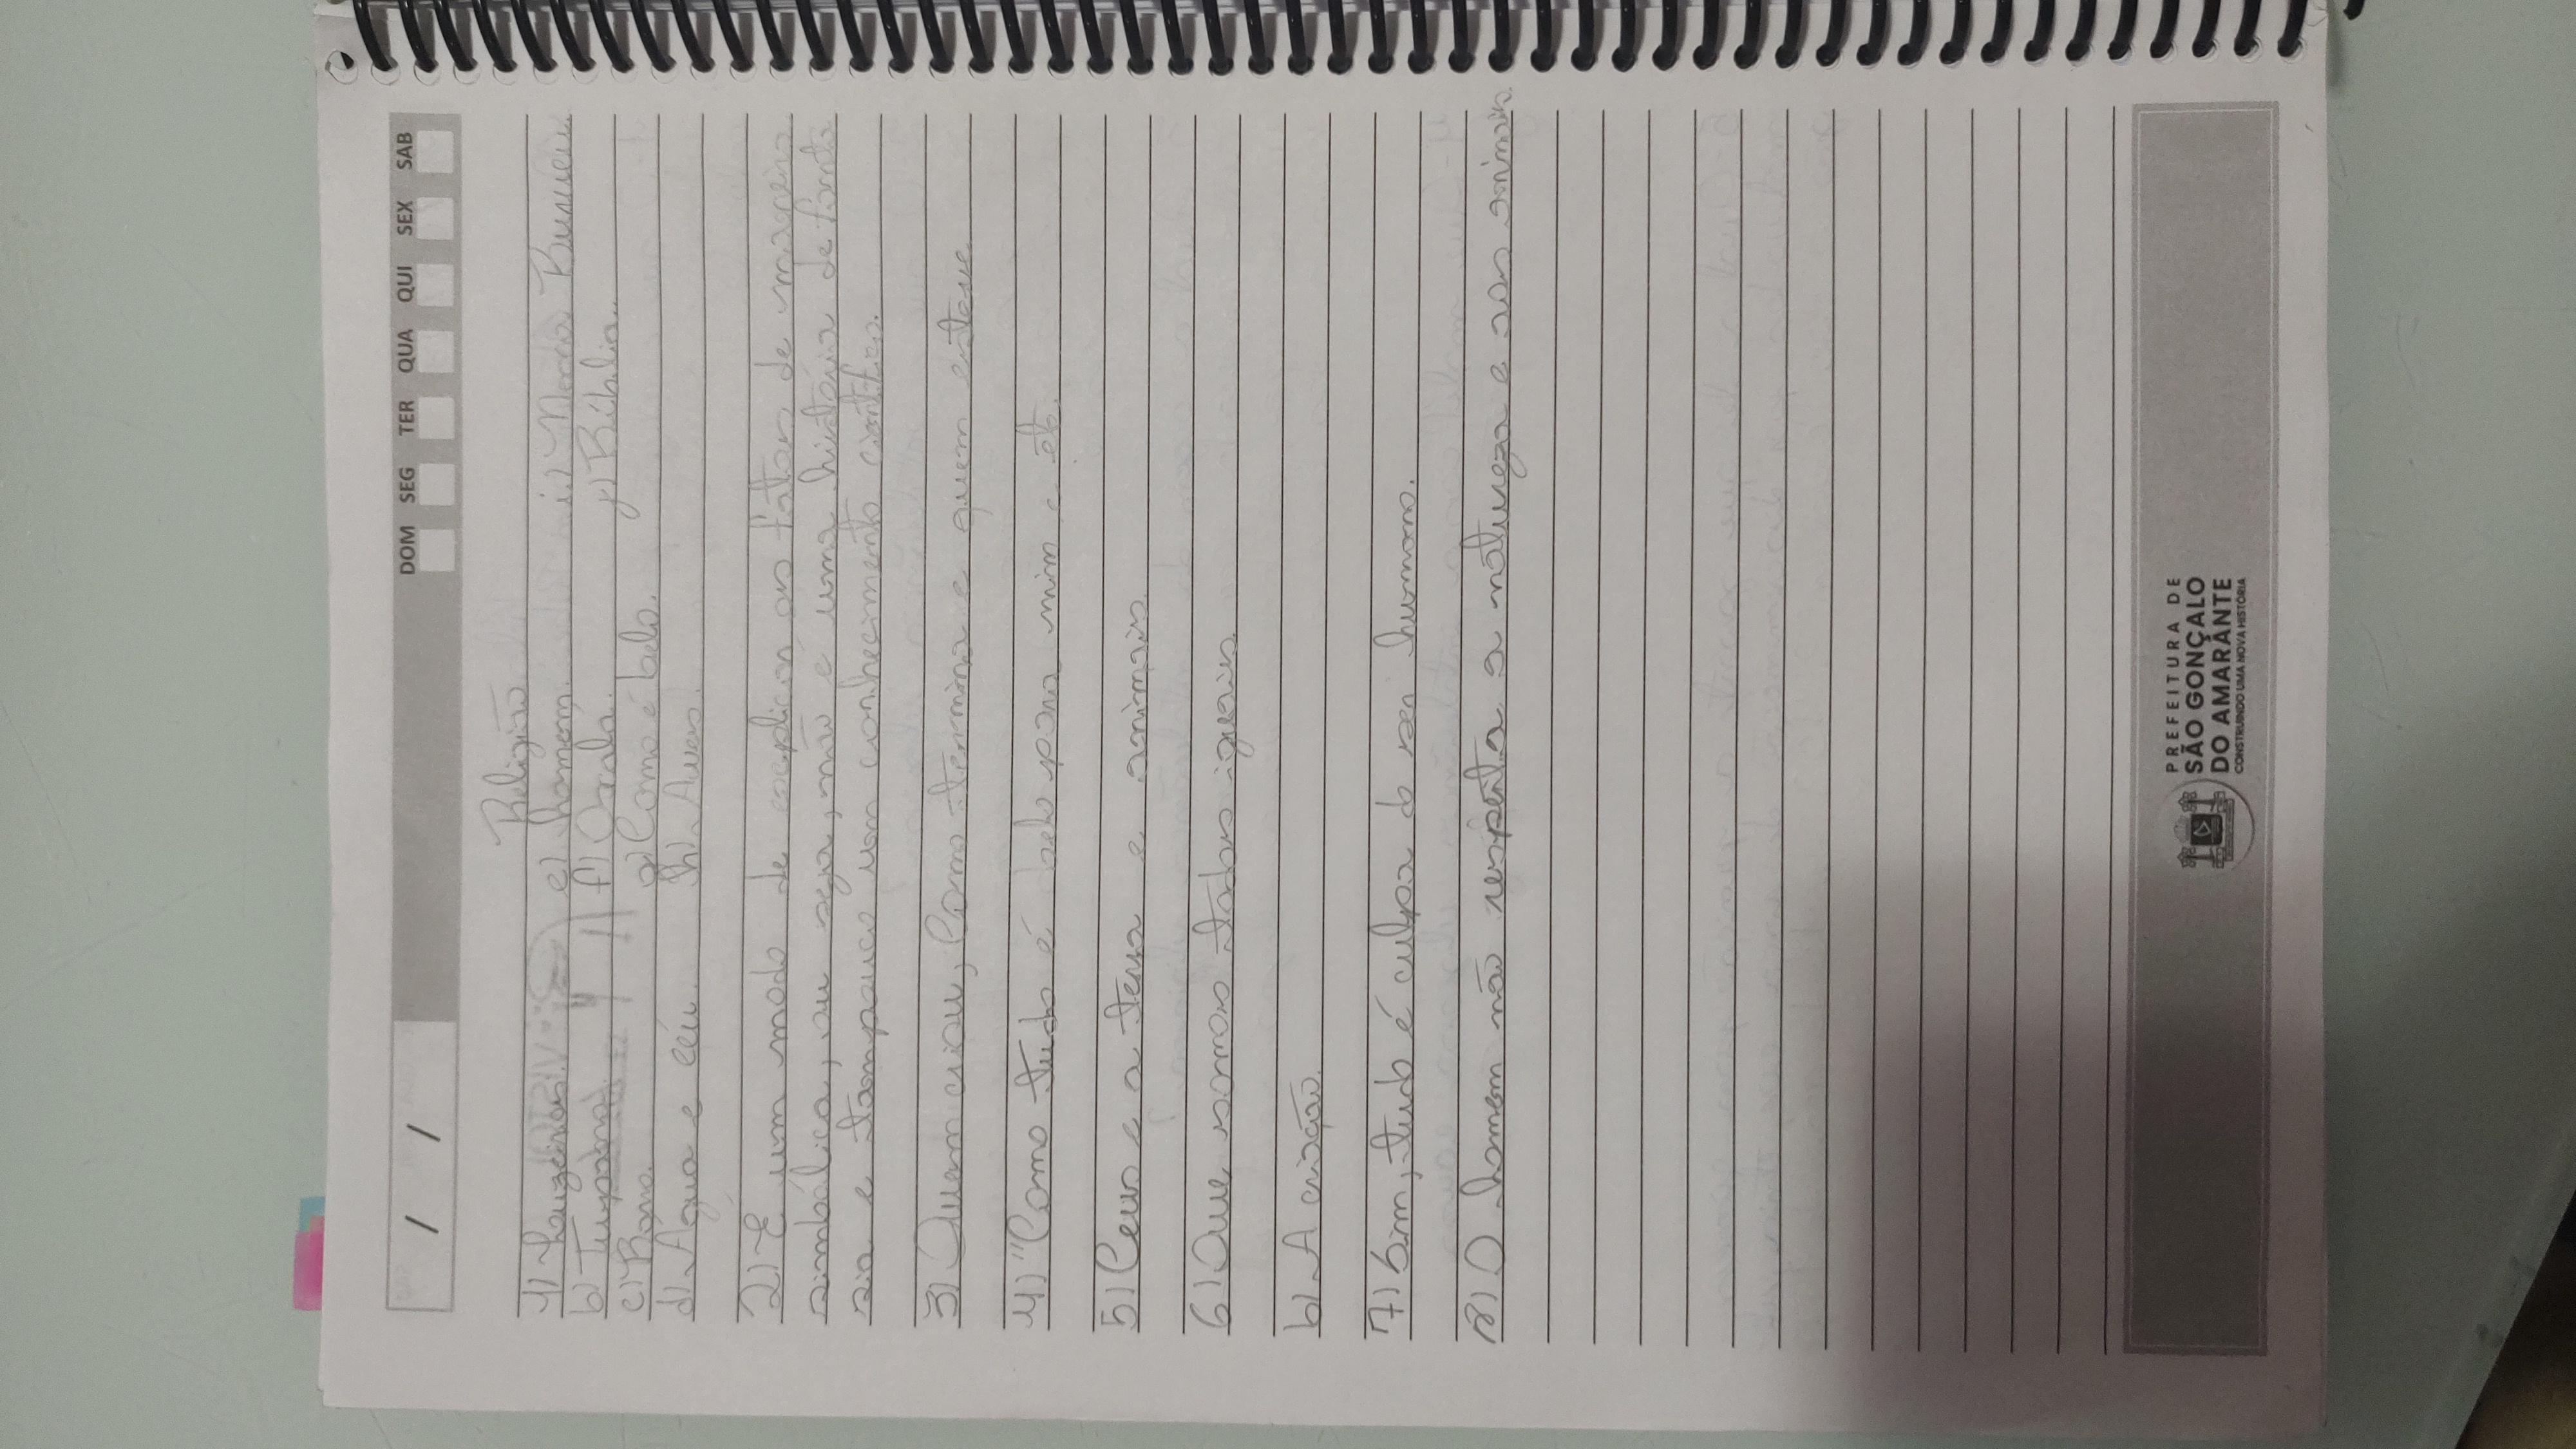 / /
DOM SEG TER QUA QUI SEX SAB
Religião
1) Luzeiros. e) homem. i)
b) Tupana. f) Oxalá. j) Bíblia.
c) Bom. g) Como é belo.
d) Água e céu. h) Aves.
2) É um modo de explicar os fatos de maneira
simbólica, ou seja, não é uma história de fanta
sia e tampouco um conhecimento científico.
3) Quem criou, Como termina e quem esteve
4) "Como tudo é belo para mim e etc.
5) Ceus e a terra e animais.
6) Que somos todos iguais.
b) A criação.
7) Sim, tudo é culpa do ser humano.
8) O homem não respeita a natureza e aos animais.
PREFEITURA DE
SÃO GONÇALO
DO AMARANTE
CONSTRUINDO UMA NOVA HISTÓRIA